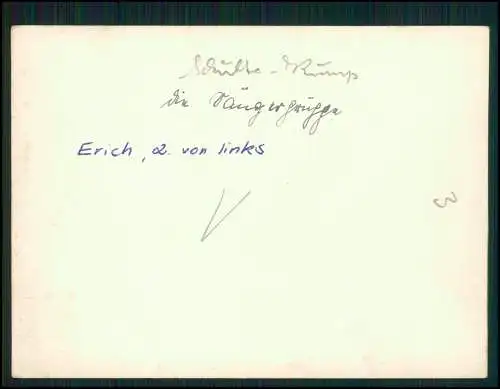 Schulte-Rump
die Sängergruppe
Erich, 2. von links
3